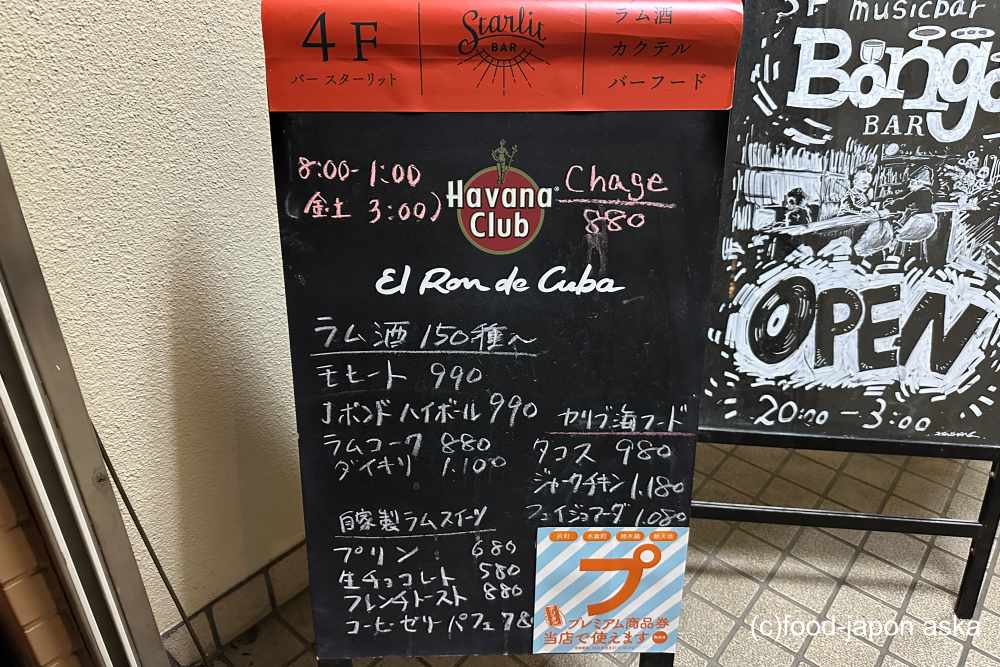 4F
バー スターリット
Starlit
BAR
ラム酒
カクテル
バーフード
8:00- 1:00
(金土 3:00)
Havana
Club
Chage
880
El Ron de Cuba
ラム酒 150種〜
モヒート 990
Jボンドハイボール 990
ラムコーク 880
ダイキリ 1.100
カリブ海フード
タコス 980
ジャークチキン 1.180
フェイジョアーダ 1.080
自家製ラムスイーツ
プリン 680
生チョコレート 580
フレンチトースト 880
コーヒーゼリーパフェ 78
プ
プレミアム商品券
当店で使えます
musicbar
Bongo
BAR
OPEN
20:00 - 3:00
(c)food-japon aska